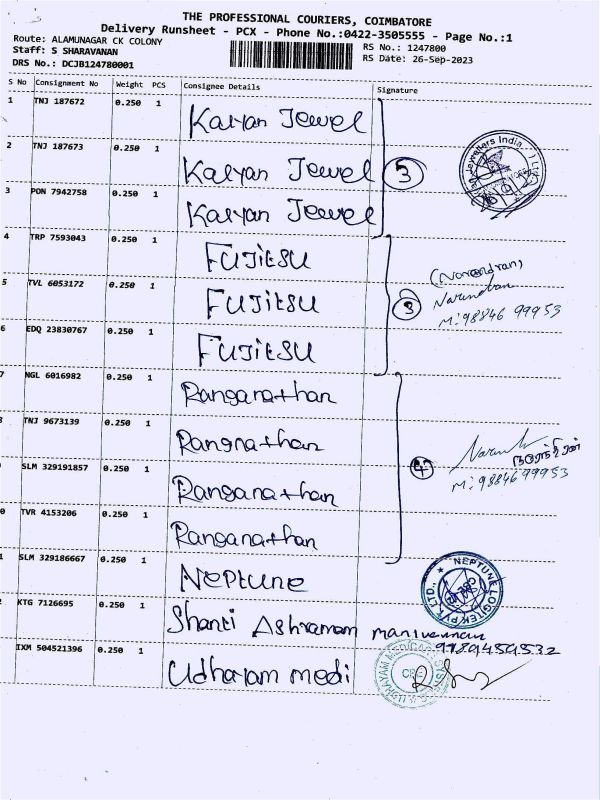 THE PROFESSIONAL COURIERS, COIMBATORE
Delivery Runsheet - PCX - Phone No.:0422-3505555 - Page No.:1
Route: ALAMUNAGAR CK COLONY
Staff: S SHARAVANAN
DRS No.: DCJB124780001
RS No.: 1247800
RS Date: 26-Sep-2023
S No Consignment No Weight PCS Consignee Details Signature
1 TNJ 187672 0.250 1 Kalyan Jewel
2 TNJ 187673 0.250 1 Kalyan Jewel 3
3 PON 7942758 0.250 1 Kalyan Jewel
4 TRP 7593043 0.250 1 FUJITSU
(Narendran)
5 TVL 6053172 0.250 1 FUJITSU 3
M: 98846 99953
6 EDQ 23830767 0.250 1 FUJITSU
7 NGL 6016982 0.250 1 Ranganathan
TNJ 9673139 0.250 1 Rangnathan
SLM 329191857 0.250 1 Ranganathan 4
M: 98846 99953
0 TVR 4153206 0.250 1 Ranganathan
1 SLM 329186667 0.250 1 NEPTUNE
NEPTUNE LOGITEK PVT LTD
KTG 7126695 0.250 1 Shanti Ashramam manivannan
9789454532
IXM 504521396 0.250 1 Udhayam medi